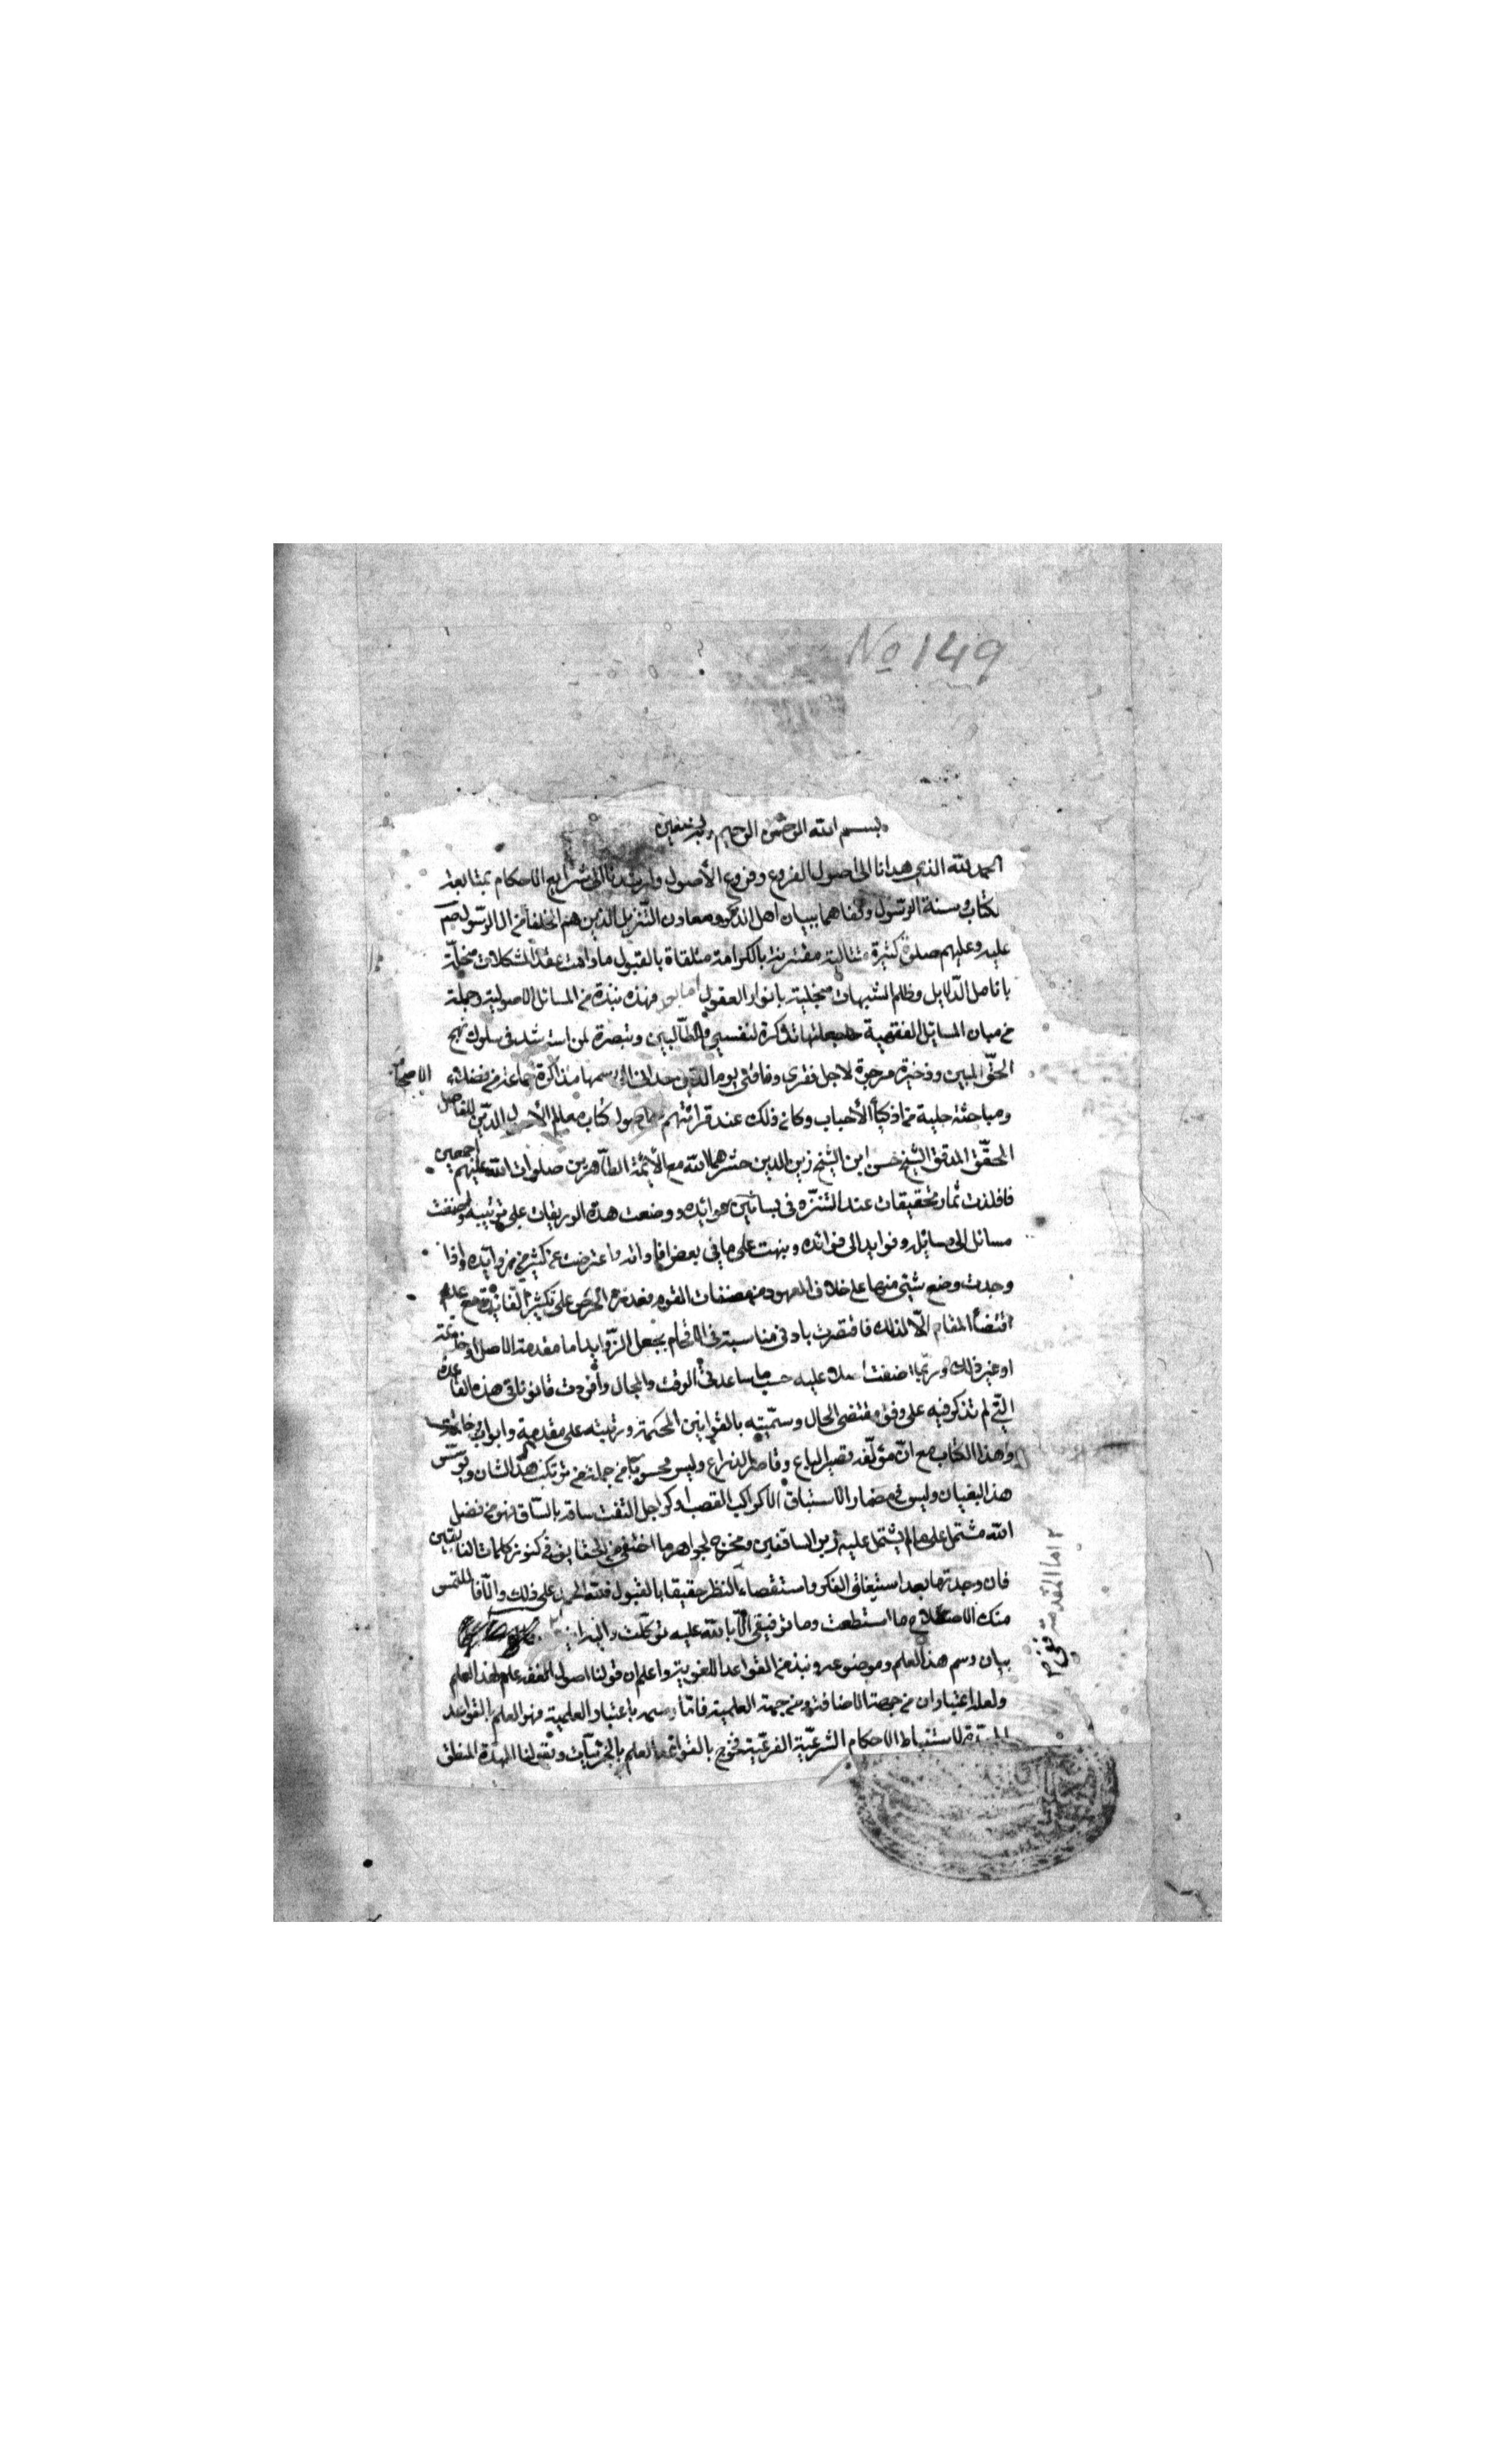 No 149
بسم الله الرحمن الرحيم وبه نستعين
الحمد لله الذي هدانا الى اصول الفروع وفروع الأصول وارشدنا الى شرايع الاحكام بمتابعة
لكتاب وسنة الرسول وكفاهما ببيان اهل الذكر ومعادن التنزيل الذين هم الخلفا من ال الرسول صم
عليه وعليهم صلوة كثيرة متتالية مقترنة بالكرامة متلقاة بالقبول مادامت عقد المشكلات منحلة
بانامل الدلايل وظلم الشبهات منجلية بانوار العقول اما بعد فهذه نبذة من المسائل الاصولية وجملة
من مبان المسايل الفقهية جعلتها تذكرة لنفسي والطالبين وتبصرة لمن استرشد في سلوك نهج
الحق المبين وذخيرة مرجوة لاجل فقري وفاقتي يوم الدين حداني الى رسمها مذاكرة جماعة من فضلاء الاصحاب
ومباحثة جلية من اذكياء الأحباب وكان ذلك عند قرائتهم اصول كتاب معالم الدين للفاضل
المحقق المدقق الشيخ حسن ابن الشيخ زين الدين حشرهما الله مع الأئمة الطاهرين صلوات الله عليهم اجمعين
فاقلذت ثمار تحقيقات عند التنزه في بساتين عوائده ووضعت هذه الوريقات على ترتيبه واضفت
مسائل الى مسايله وفوايد الى فوائده ونبهت على ما في بعض افاداته واعرضت عن كثير من زوائده واذا
وجدت وضع شيئ منها على خلاف المعهود من مصنفات القوم فعذره الحرص على تكثير الفائدة مع عدم
اقتضاء المقام الا لذلك فاقتصرت بادنى مناسبة في الاقحام بجعل الزوايد اما مقدمة للاصل او خاتمة
او غير ذلك وربما اضفت عليه حسب ما ساعدني الوقت والمجال وأفردت قانونا في هذه القاعدة
التي لم تذكر فيه على وفق مقتضى الحال وسميته بالقوانين المحكمة ورتبته على مقدمة وابواب وخاتمة
وهذا الكتاب مع ان مؤلفه قصير الباع وقاصر الذراع وليس محسوبا من جملة من يرتكب هذا الشان ويؤسس
هذا البنيان وليس في مضمار الاستباق الا كراكب القصب او كراجل التفت ساقه بالساق فهو من فضل
الله مشتمل على ما لم يشتمل عليه زبر السابقين ومخرج لجواهر ما اختفى من الحقايق في كنوز كلمات الفايقين
فان وجدته بعد استيفاء الفكر واستقصاء النظر حقيقا بالقبول فلله الحمد على ذلك والا فالملتمس
منك الاصلاح ما استطعت وما توفيقي الا بالله عليه توكلت واليه انيب
بيان رسم هذا العلم وموضوعه ونبذ من القواعد اللغوية واعلم ان قولنا اصول الفقه علم لهذا العلم
وله اعتباران من جهة الاضافة ومن جهة العلمية فاما رسمه باعتبار العلمية فهو العلم بالقواعد
الممهدة لاستنباط الاحكام الشرعية الفرعية فخرج بالقواعد العلم بالجزئيات وبقولنا الممهدة المنطق
اما المقدمة ففي